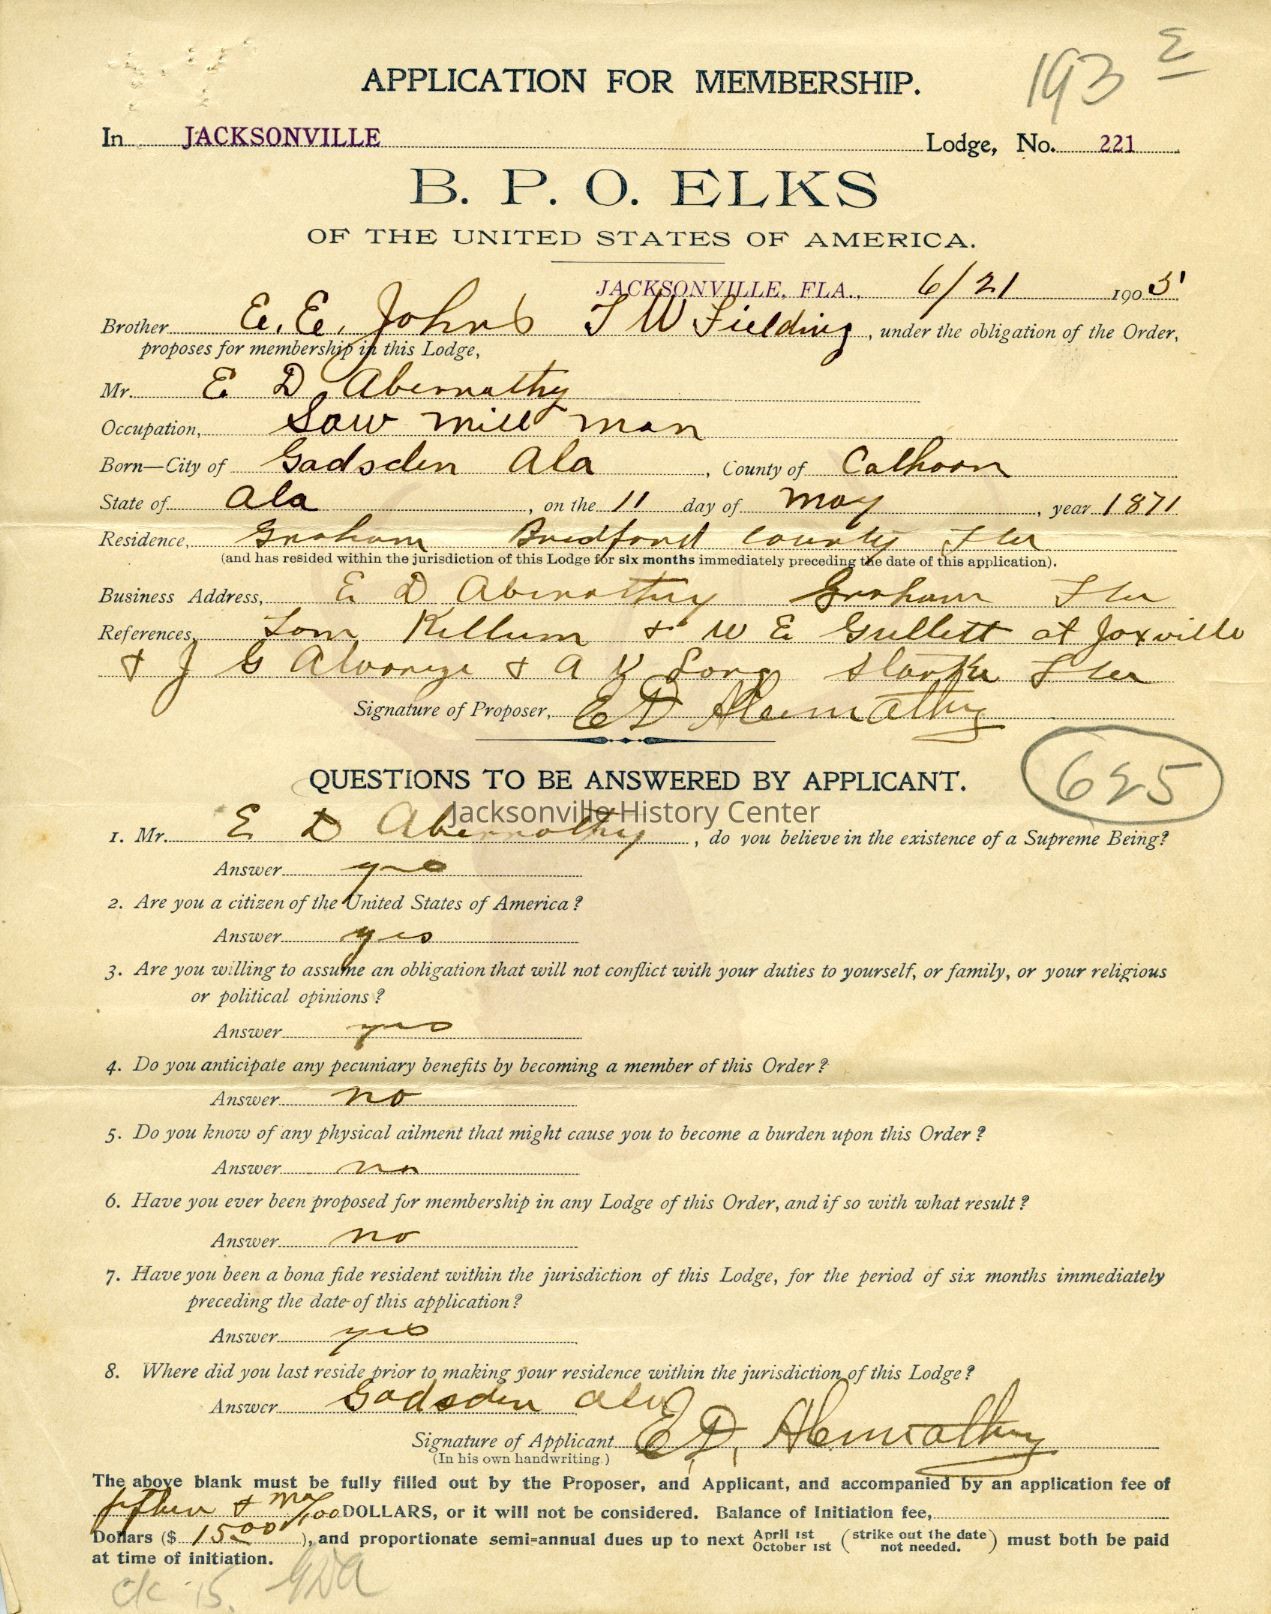 193 E
APPLICATION FOR MEMBERSHIP.
In JACKSONVILLE Lodge, No. 221
B. P. O. ELKS
OF THE UNITED STATES OF AMERICA.
JACKSONVILLE, FLA., 6/21 1905
Brother E. E. Johns T W Fielding, under the obligation of the Order,
proposes for membership in this Lodge,
Mr. E D Abernathy
Occupation, Saw mill man
Born—City of Gadsden Ala, County of Calhoon
State of Ala, on the 11 day of May, year 1871
Residence, Graham Bradford County Fla
(and has resided within the jurisdiction of this Lodge for six months immediately preceding the date of this application).
Business Address, E D Abernathy Graham Fla
References, Tom Kellum & W E Gullett at Jaxville
& J G Alvarez & A V Long Starke Fla
Signature of Proposer, E D Abernathy
625
QUESTIONS TO BE ANSWERED BY APPLICANT.
Jacksonville History Center
1. Mr. E D Abernathy, do you believe in the existence of a Supreme Being?
Answer yes
2. Are you a citizen of the United States of America?
Answer yes
3. Are you willing to assume an obligation that will not conflict with your duties to yourself, or family, or your religious
or political opinions?
Answer yes
4. Do you anticipate any pecuniary benefits by becoming a member of this Order?
Answer no
5. Do you know of any physical ailment that might cause you to become a burden upon this Order?
Answer no
6. Have you ever been proposed for membership in any Lodge of this Order, and if so with what result?
Answer no
7. Have you been a bona fide resident within the jurisdiction of this Lodge, for the period of six months immediately
preceding the date of this application?
Answer yes
8. Where did you last reside prior to making your residence within the jurisdiction of this Lodge?
Answer Gadsden Ala
Signature of Applicant E. D. Abernathy
(In his own handwriting.)
The above blank must be fully filled out by the Proposer, and Applicant, and accompanied by an application fee of
fifteen & no/100 DOLLARS, or it will not be considered. Balance of Initiation fee,
Dollars ($ 15 00), and proportionate semi-annual dues up to next April 1st October 1st (strike out the date not needed.) must both be paid
at time of initiation.
ck 15.